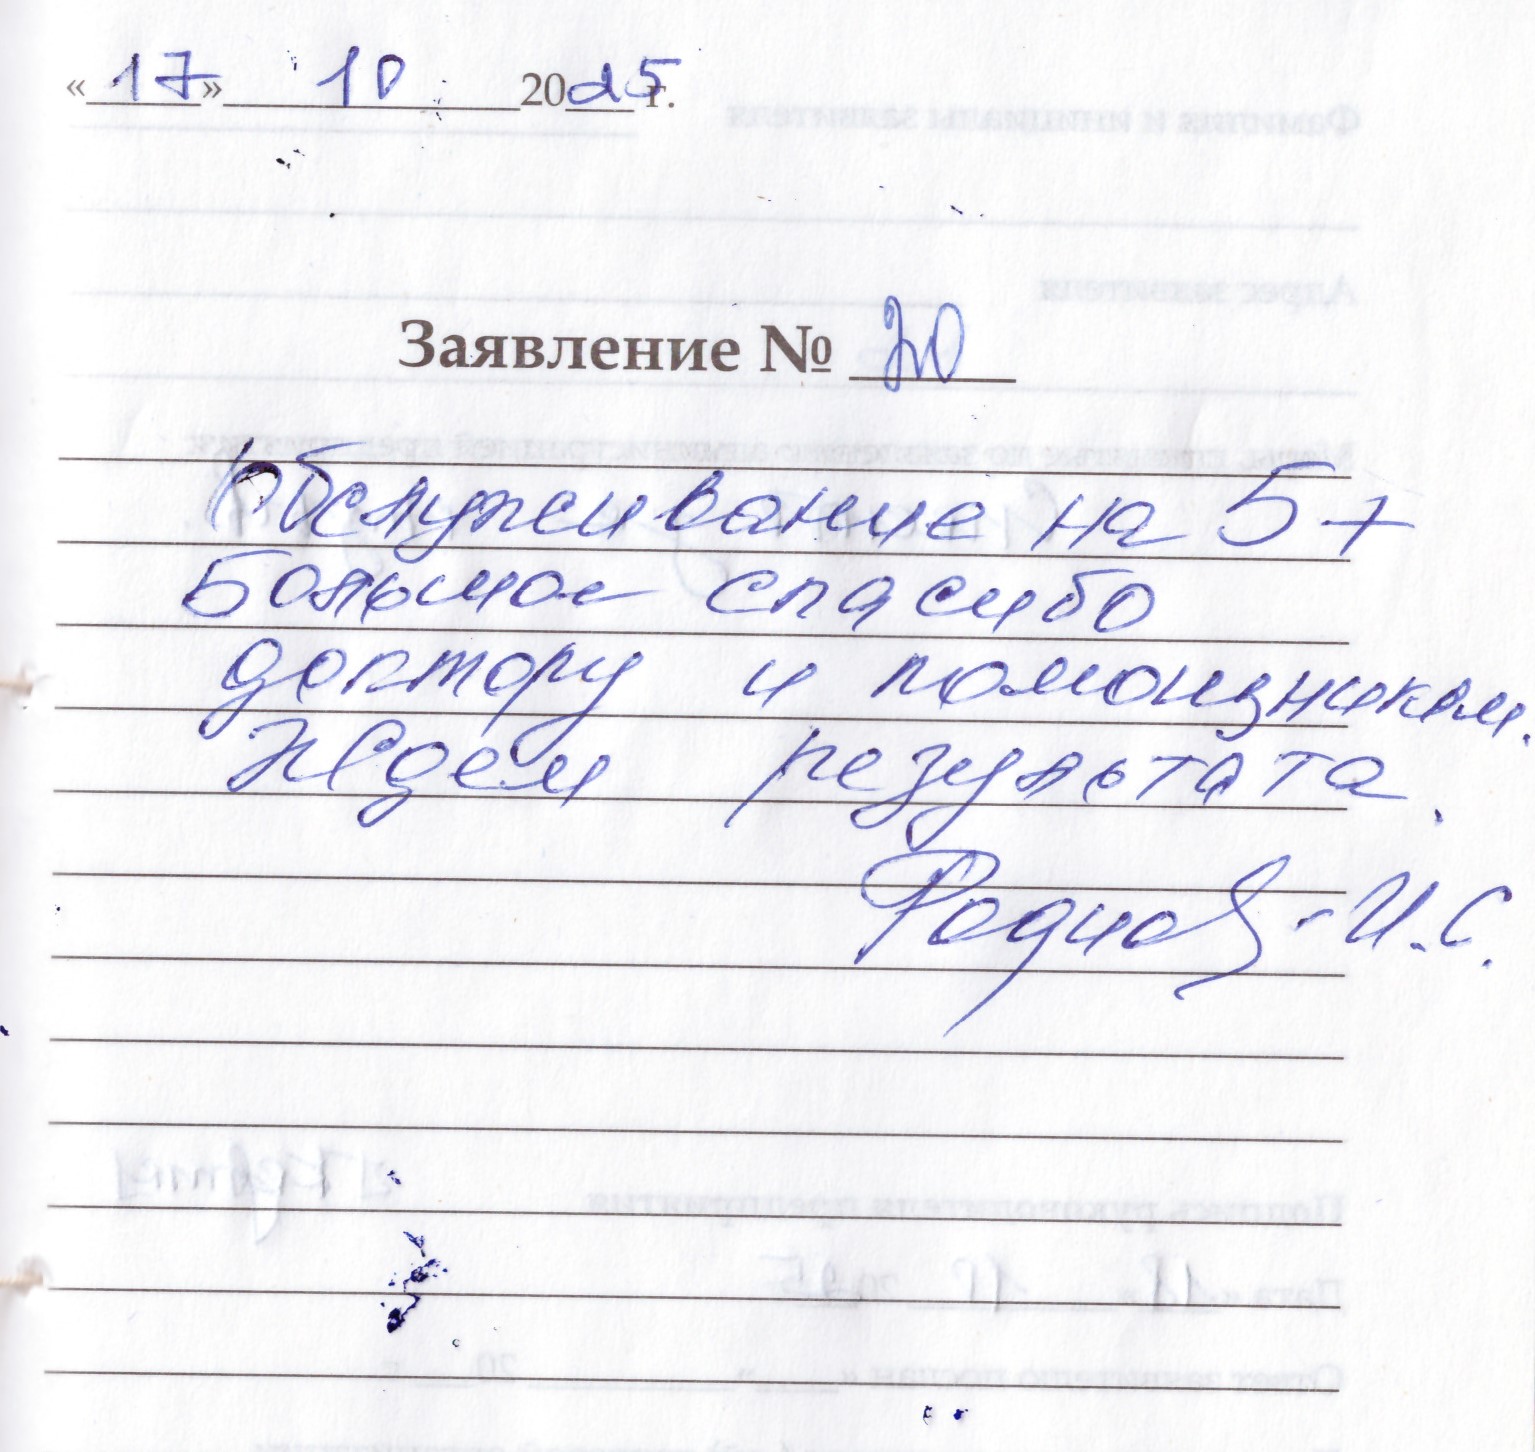 «17» 10 2025 г.
Заявление № 20
Обслуживание на 5+
Большое спасибо
доктору и помощникам.
Ждем результата.
И.С.